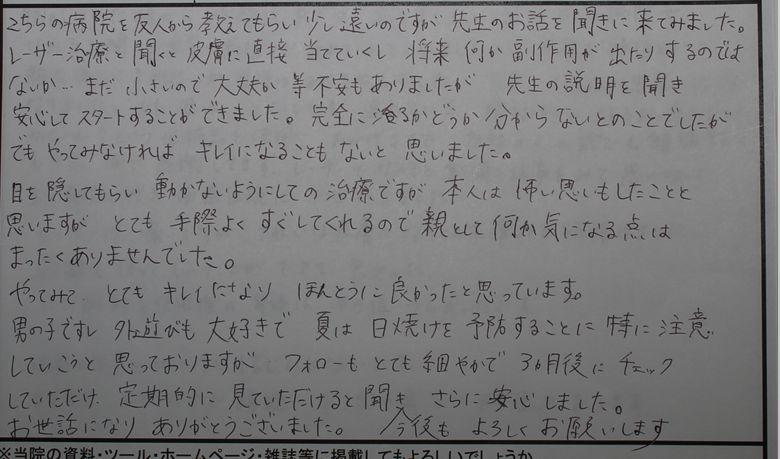 こちらの病院を友人から教えてもらい 少し遠いのですが 先生のお話を聞きに来てみました。
レーザー治療と聞くと皮膚に直接 当てていくし 将来 何か副作用が出たりするのでは
ないか… まだ 小さいので 大丈夫か 等不安もありましたが 先生の説明を聞き
安心してスタートすることができました。完全に治るかどうか分からないとのことでしたが
でも やってみなければ キレイになることも ないと 思いました。
目を隠してもらい 動かないようにしての治療ですが 本人は怖い思いもしたことと
思いますが とても 手際よく すぐしてくれるので 親として何か気になる点は
まったくありませんでした。
やってみて、とても キレイになり ほんとうに良かったと思っています。
男の子ですし 外遊びも 大好きで 夏は 日焼けを 予防することに 特に 注意
していこうと 思っておりますが フォローも とても 細やかで 3ヵ月後に チェック
していただけ 定期的に 見ていただけると聞き さらに 安心しました。
お世話になり ありがとうございました。 今後も よろしく お願いします
※当院の資料・ツール・ホームページ・雑誌等に掲載してもよろしいでしょうか